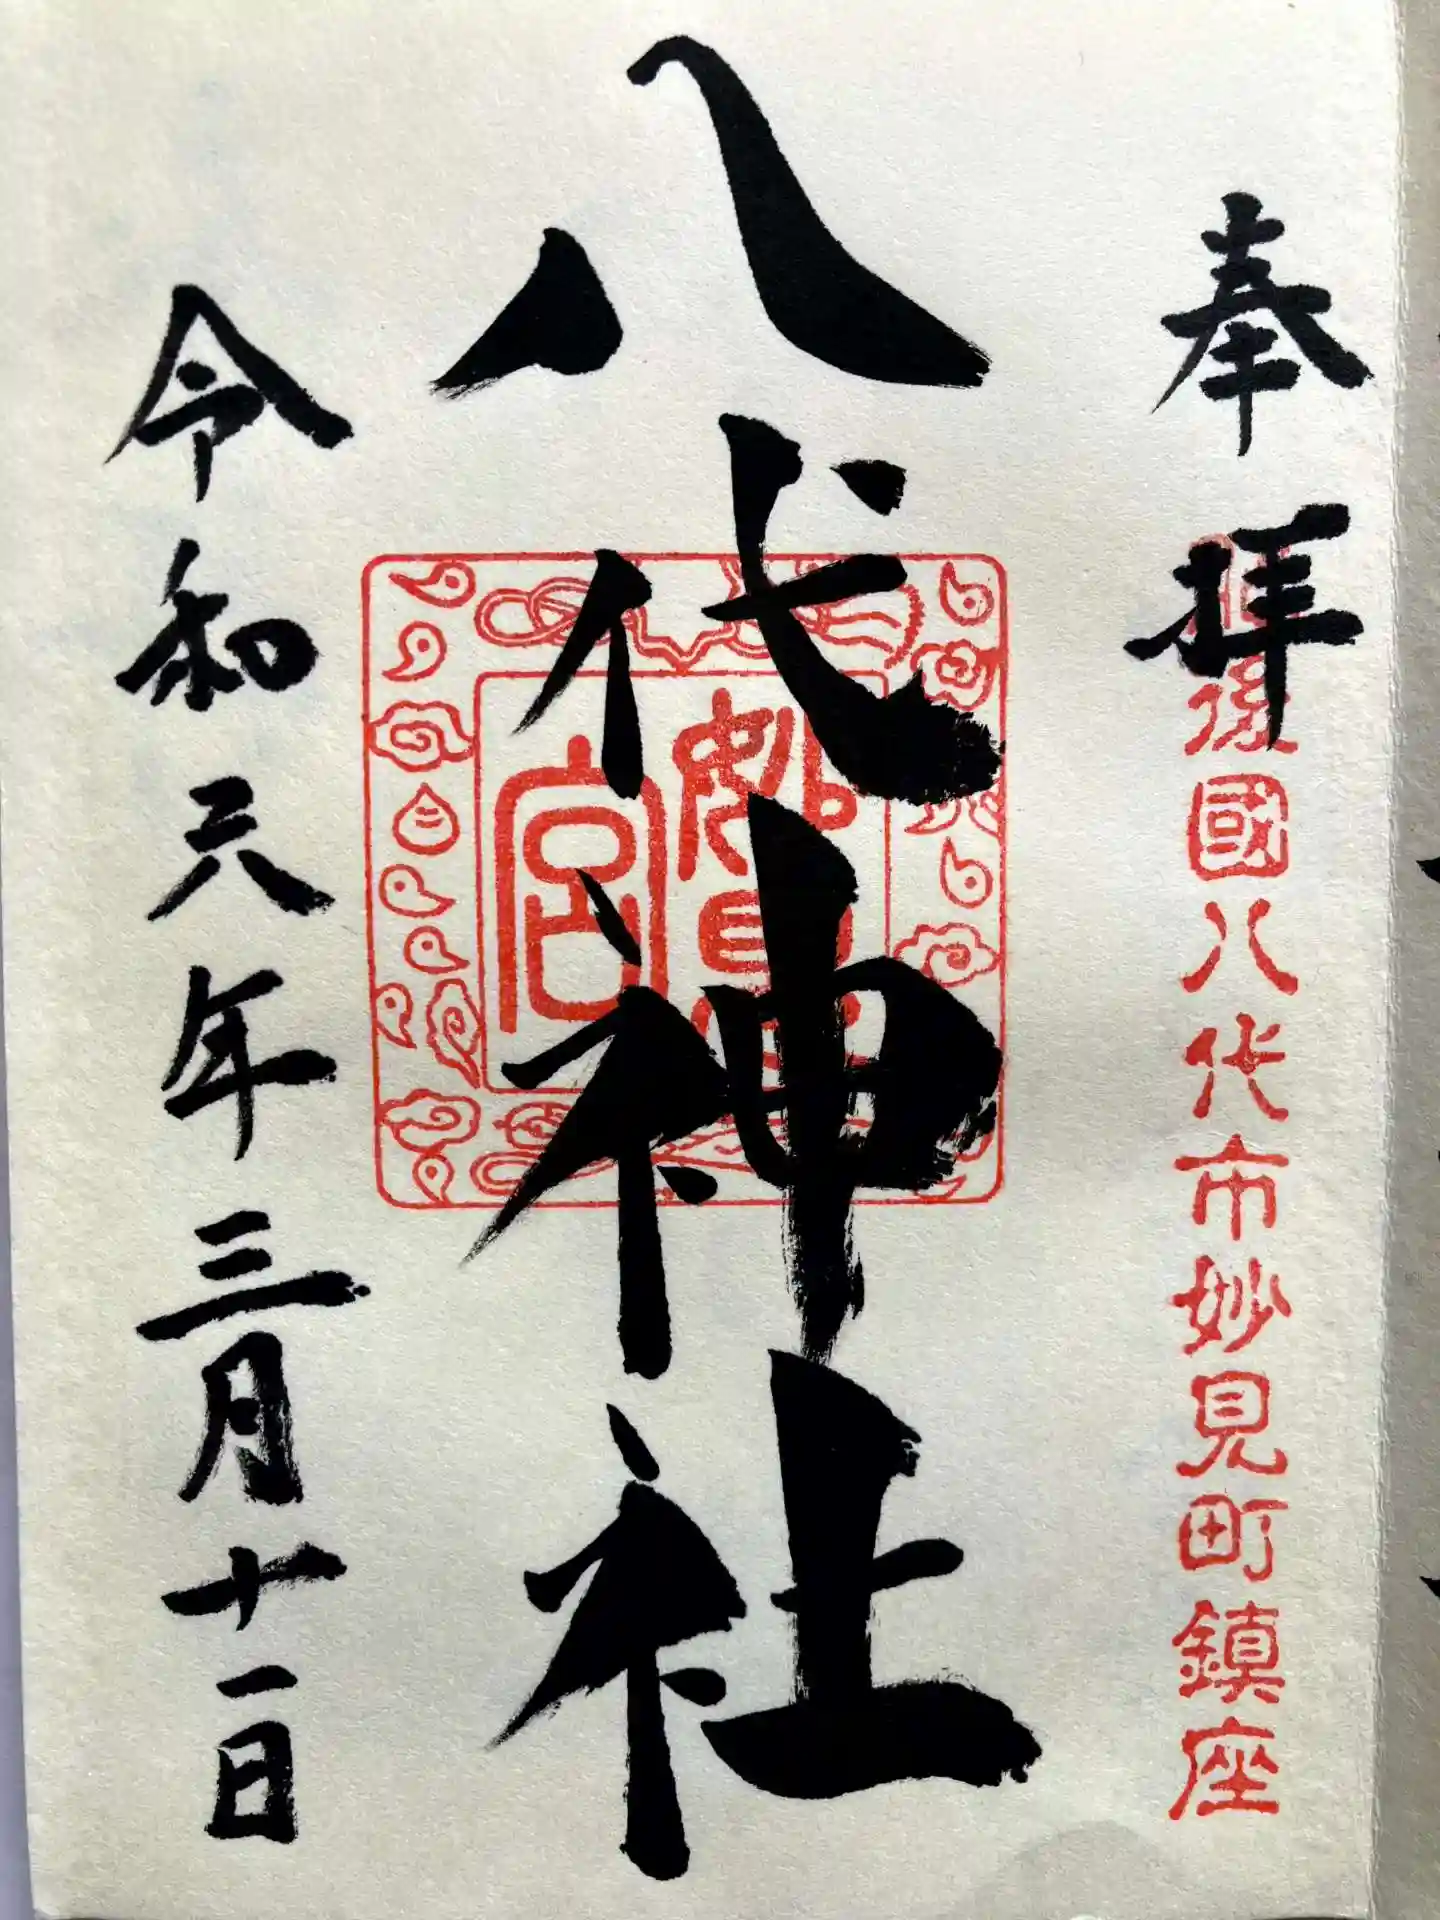 奉拝
肥後國八代市妙見町鎮座
八代神社
妙見宮
令和六年三月十一日